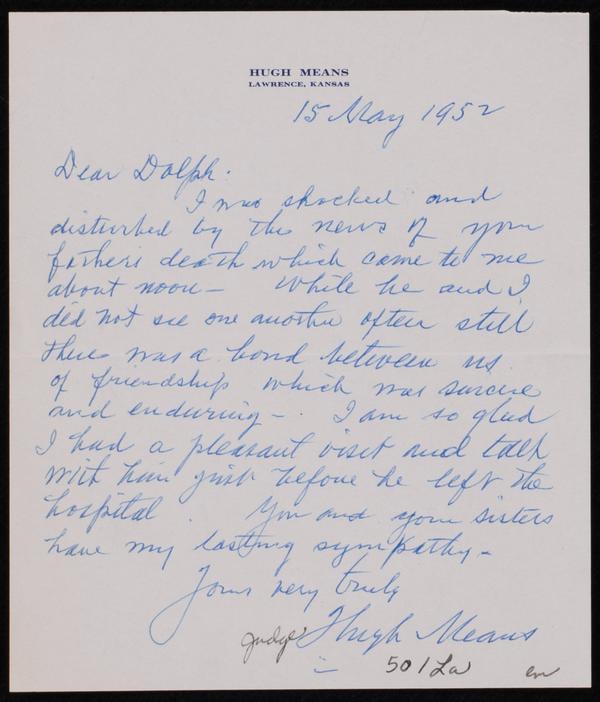 HUGH MEANS
LAWRENCE, KANSAS
15 May 1952
Dear Dolph.
I was shocked and
disturbed by the news of your
fathers death which came to me
about noon – While he and I
did not see one another often still
there was a bond between us
of friendship which was sincere
and enduring – I am so glad
I had a pleasant visit and talk
with him just before he left the
hospital. You and your sisters
have my lasting sympathy –
Yours very truly
Judge Hugh Means
501 La